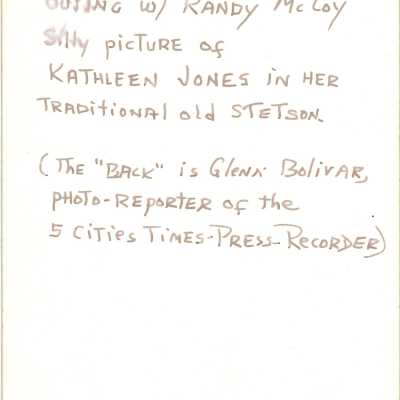 OUTING W/ RANDY McCOY
Silly picTURE of
KATHLEEN JONES iN HER
TRADitiONAl old STETSON.
(The "BACK" is Glenn BolivAR,
PHOTO-REPORTER of the
5 Cities TIMES-PRESS-RECORDER)